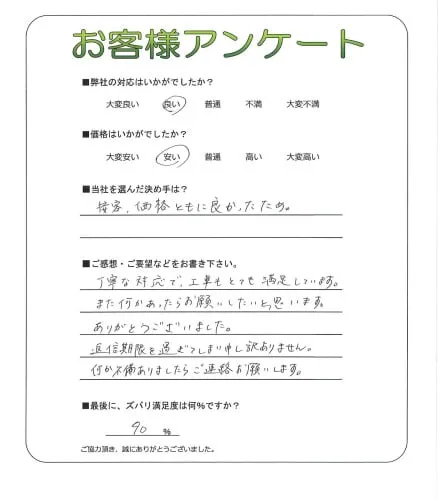 お客様アンケート
■弊社の対応はいかがでしたか？
大変良い 良い 普通 不満 大変不満
■価格はいかがでしたか？
大変安い 安い 普通 高い 大変高い
■当社を選んだ決め手は？
接客、価格ともに良かったため。
■ご感想・ご要望などをお書き下さい。
丁寧な対応で、工事もとても満足しています。
また何かあったらお願いしたいと思います。
ありがとうございました。
返信期限を過ぎてしまい申し訳ありません。
何か不備ありましたらご連絡お願いします。
■最後に、ズバリ満足度は何％ですか？
90 %
ご協力頂き、誠にありがとうございました。